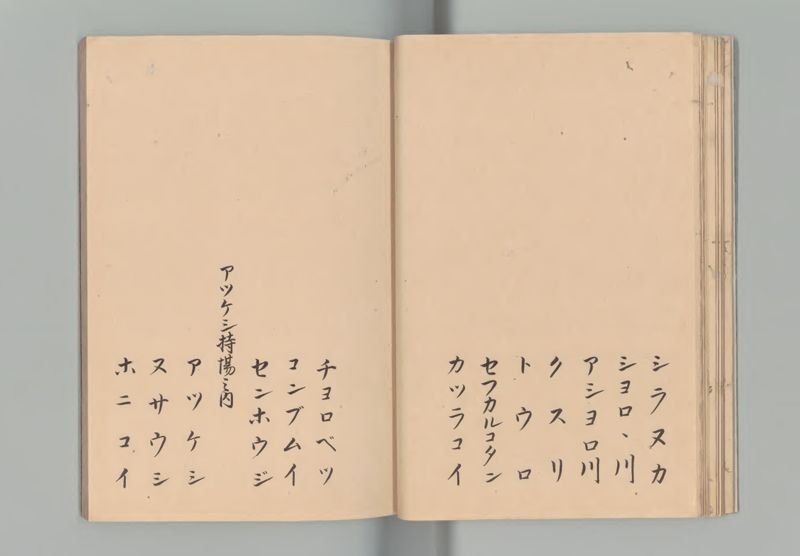 シラヌカ
シヨロ、川
アシヨロ川
クスリ
トウロ
セフカルコタン
カツラコイ
チヨロベツ
コンブムイ
センホウジ
アツケシ持場之内
アツケシ
ヌサウシ
ホニコイ